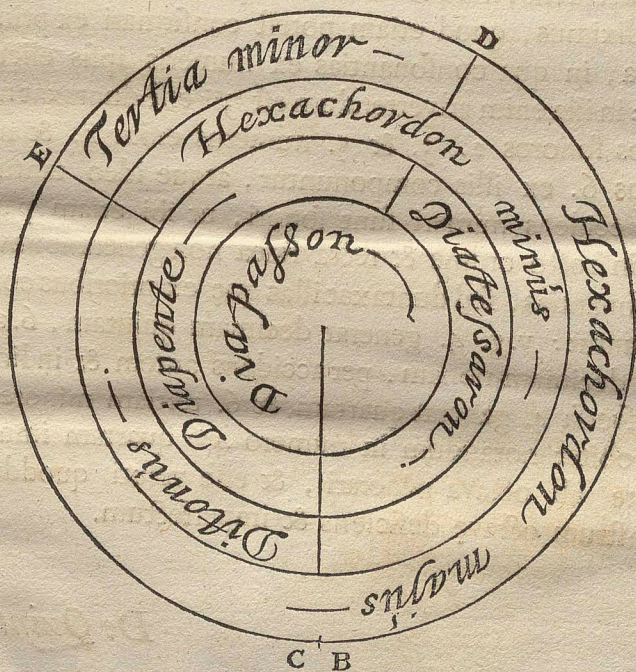 D
E
Tertia minor —
Hexachordon majús —
Hexachordon minús —
Ditonus —.
Diapente —
Diatesſaron —.
Diapaſson
C B